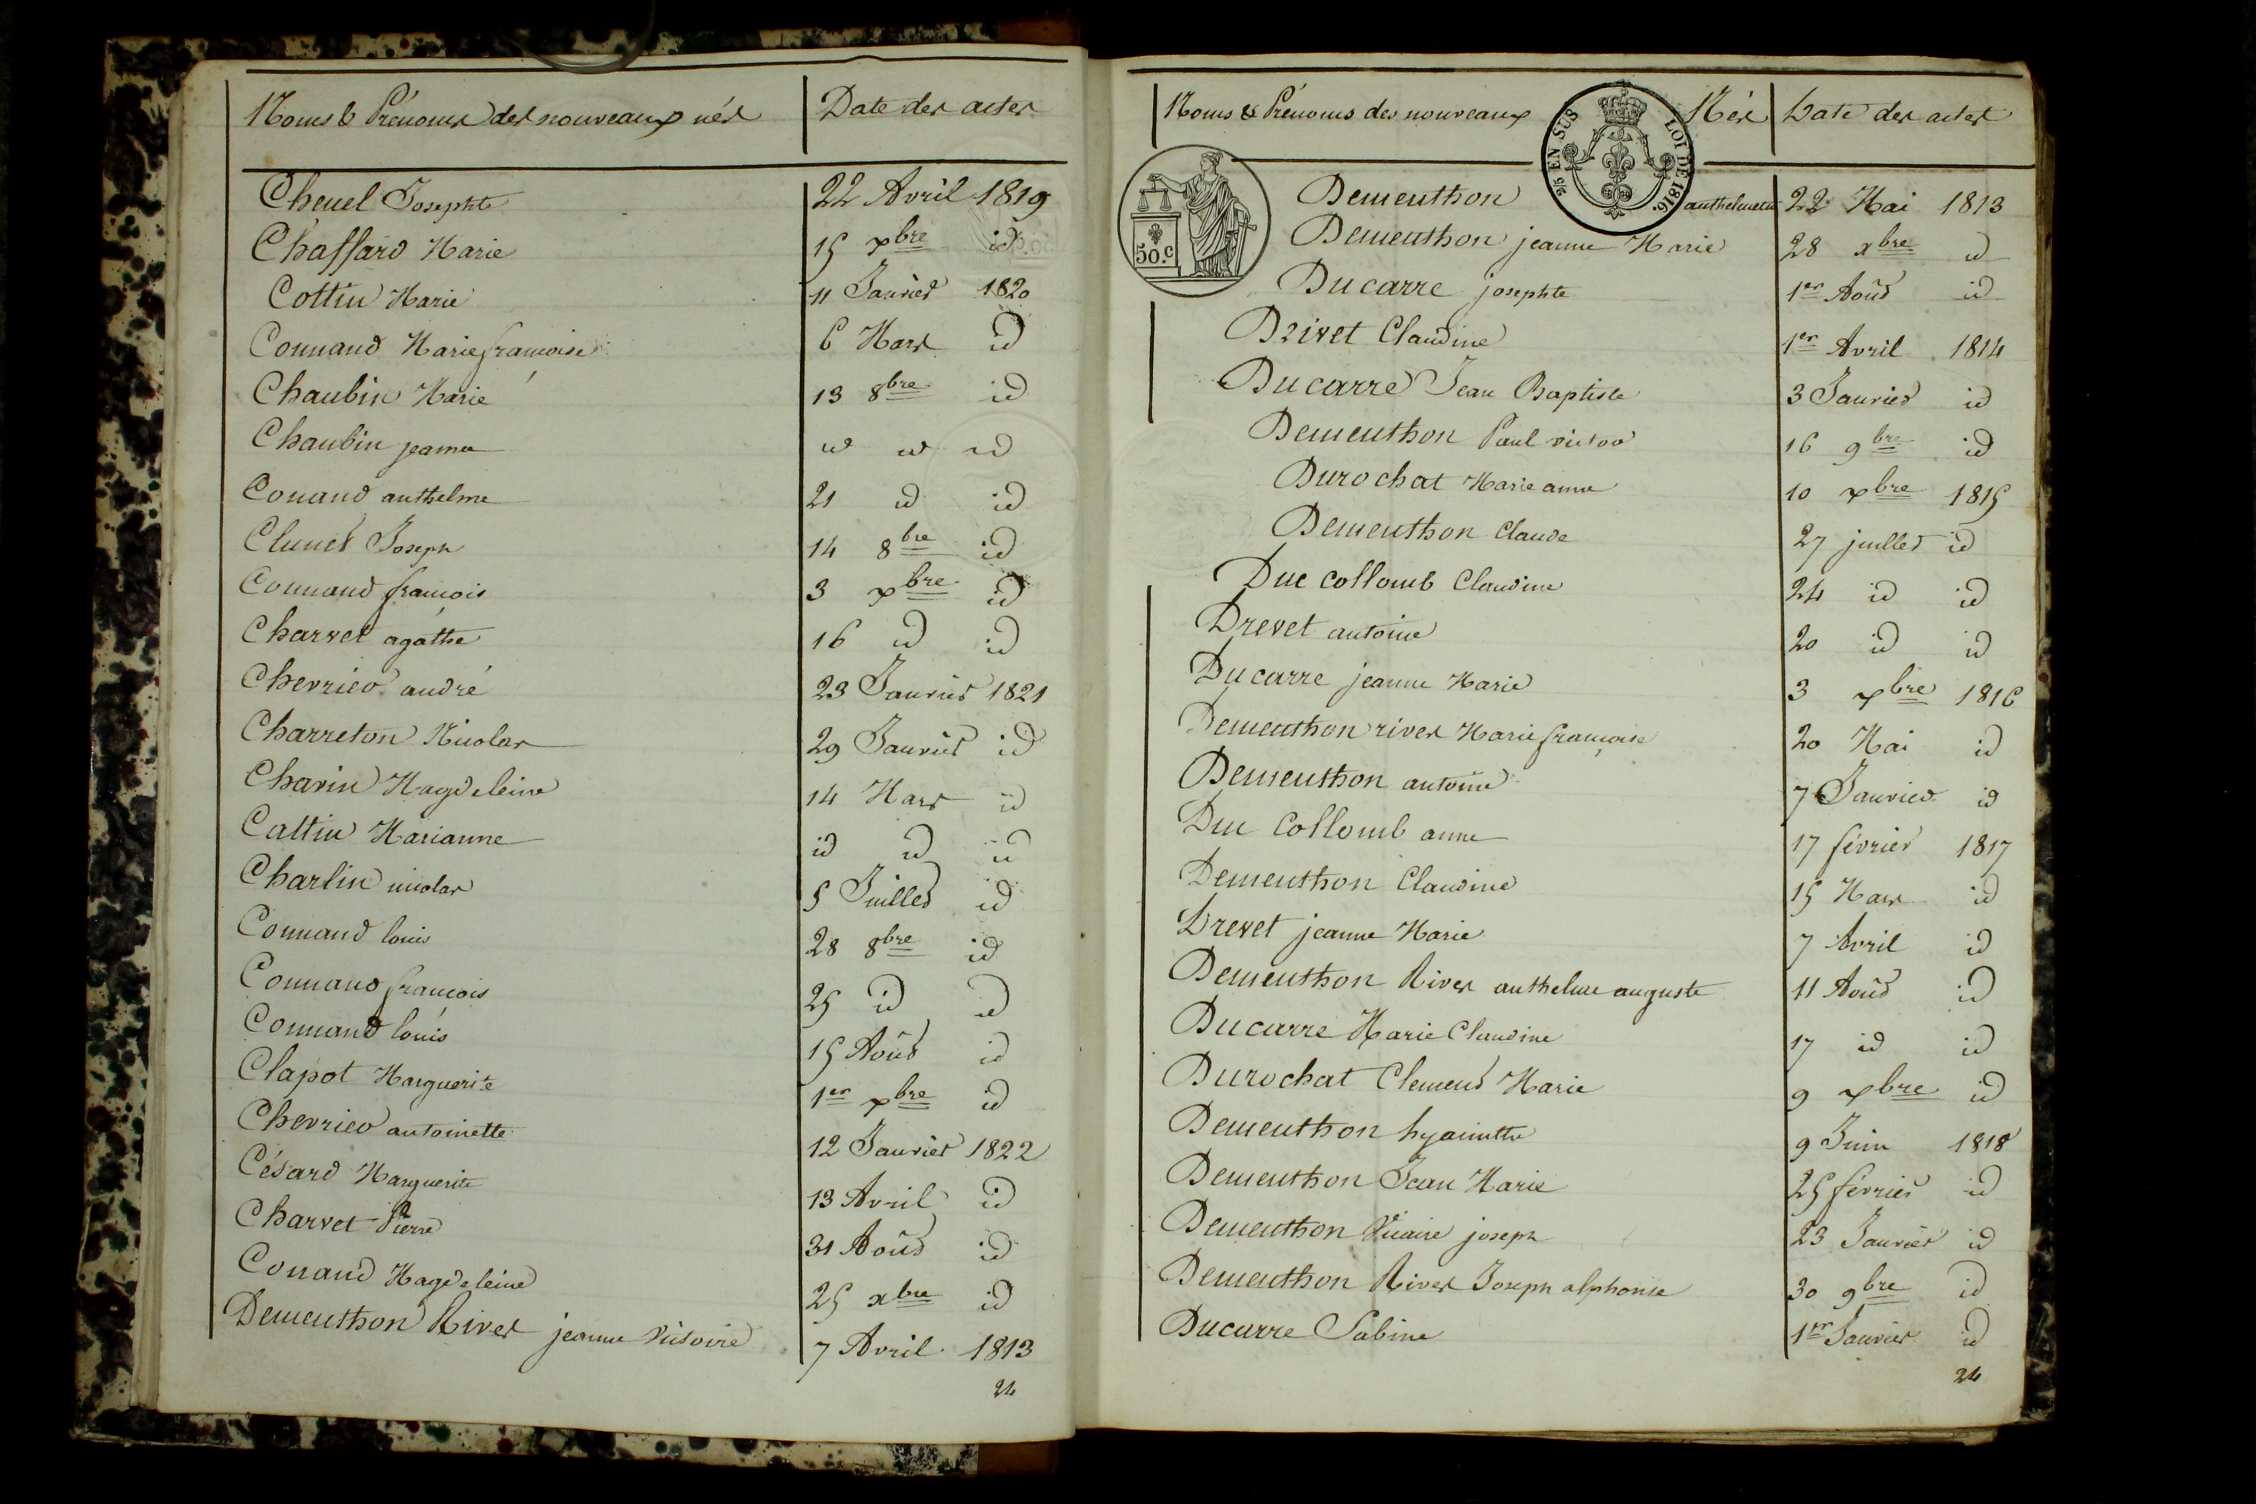 Noms & Prénoms des nouveaux nés Date des actes
Chenel Josephte 22 Avril 1819
Chaffard Marie 15 xbre id
Cottin Marie 11 Janvier 1820
Connand Marie françoise 6 Mars id
Chaubin Marie 13 8bre id
Chaubin jeanne id id id
Conand anthelme 21 id id
Clunet Joseph 14 8bre id
Connand françois 3 xbre id
Charvet agathe 16 id id
Chevrier andré 23 Janvier 1821
Charreton Nicolas 29 Janvier id
Chavin Magdeleine 14 Mars id
Cattin Marianne id id id
Charlin nicolas 5 Juillet id
Connand louis 28 8bre id
Connand françois 25 id id
Connand louis 15 Août id
Clapot Marguerite 1er xbre id
Chevrier antoinette 12 Janvier 1822
Césard Marguerite 13 Avril id
Charvet Pierre 31 Août id
Conand Magdeleine 25 xbre id
Dementhon Rives jeanne Victoire 7 Avril 1813
24
Noms & Prénoms des nouveaux Nés Date des actes
2/5 EN SUS LOI DE 1816.
50.c
Dementhon anthelmette 22 Mai 1813
Dementhon jeanne Marie 28 xbre id
Ducarre josephte 1er Août id
Drivet Claudine 1er Avril 1814
Ducarre Jean Baptiste 3 Janvier id
Dementhon Paul victor 16 9bre id
Durochat Marie anne 10 xbre 1815
Dementhon Claude 27 juillet id
Duc Collomb Claudine 24 id id
Drevet antoine 20 id id
Ducarre jeanne Marie 3 xbre 1816
Dementhon rives Marie françoise 20 Mai id
Dementhon antoine 7 Janvier id
Duc Collomb anne 17 février 1817
Dementhon Claudine 15 Mars id
Drevet jeanne Marie 7 Avril id
Dementhon Rives anthelme auguste 11 Août id
Ducarre Marie Claudine 17 id id
Durochat Clement Marie 9 xbre id
Dementhon hyacinthe 9 Juin 1818
Dementhon Jean Marie 25 février id
Dementhon Vicaire joseph 23 Janvier id
Dementhon Rives Joseph alphonse 30 9bre id
Ducarre Sabine 1er Janvier id
24